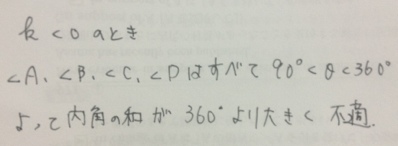 k < 0 のとき
∠A、∠B、∠C、∠Dはすべて 90° < θ < 360°
よって内角の和が 360° より大きく 不適.